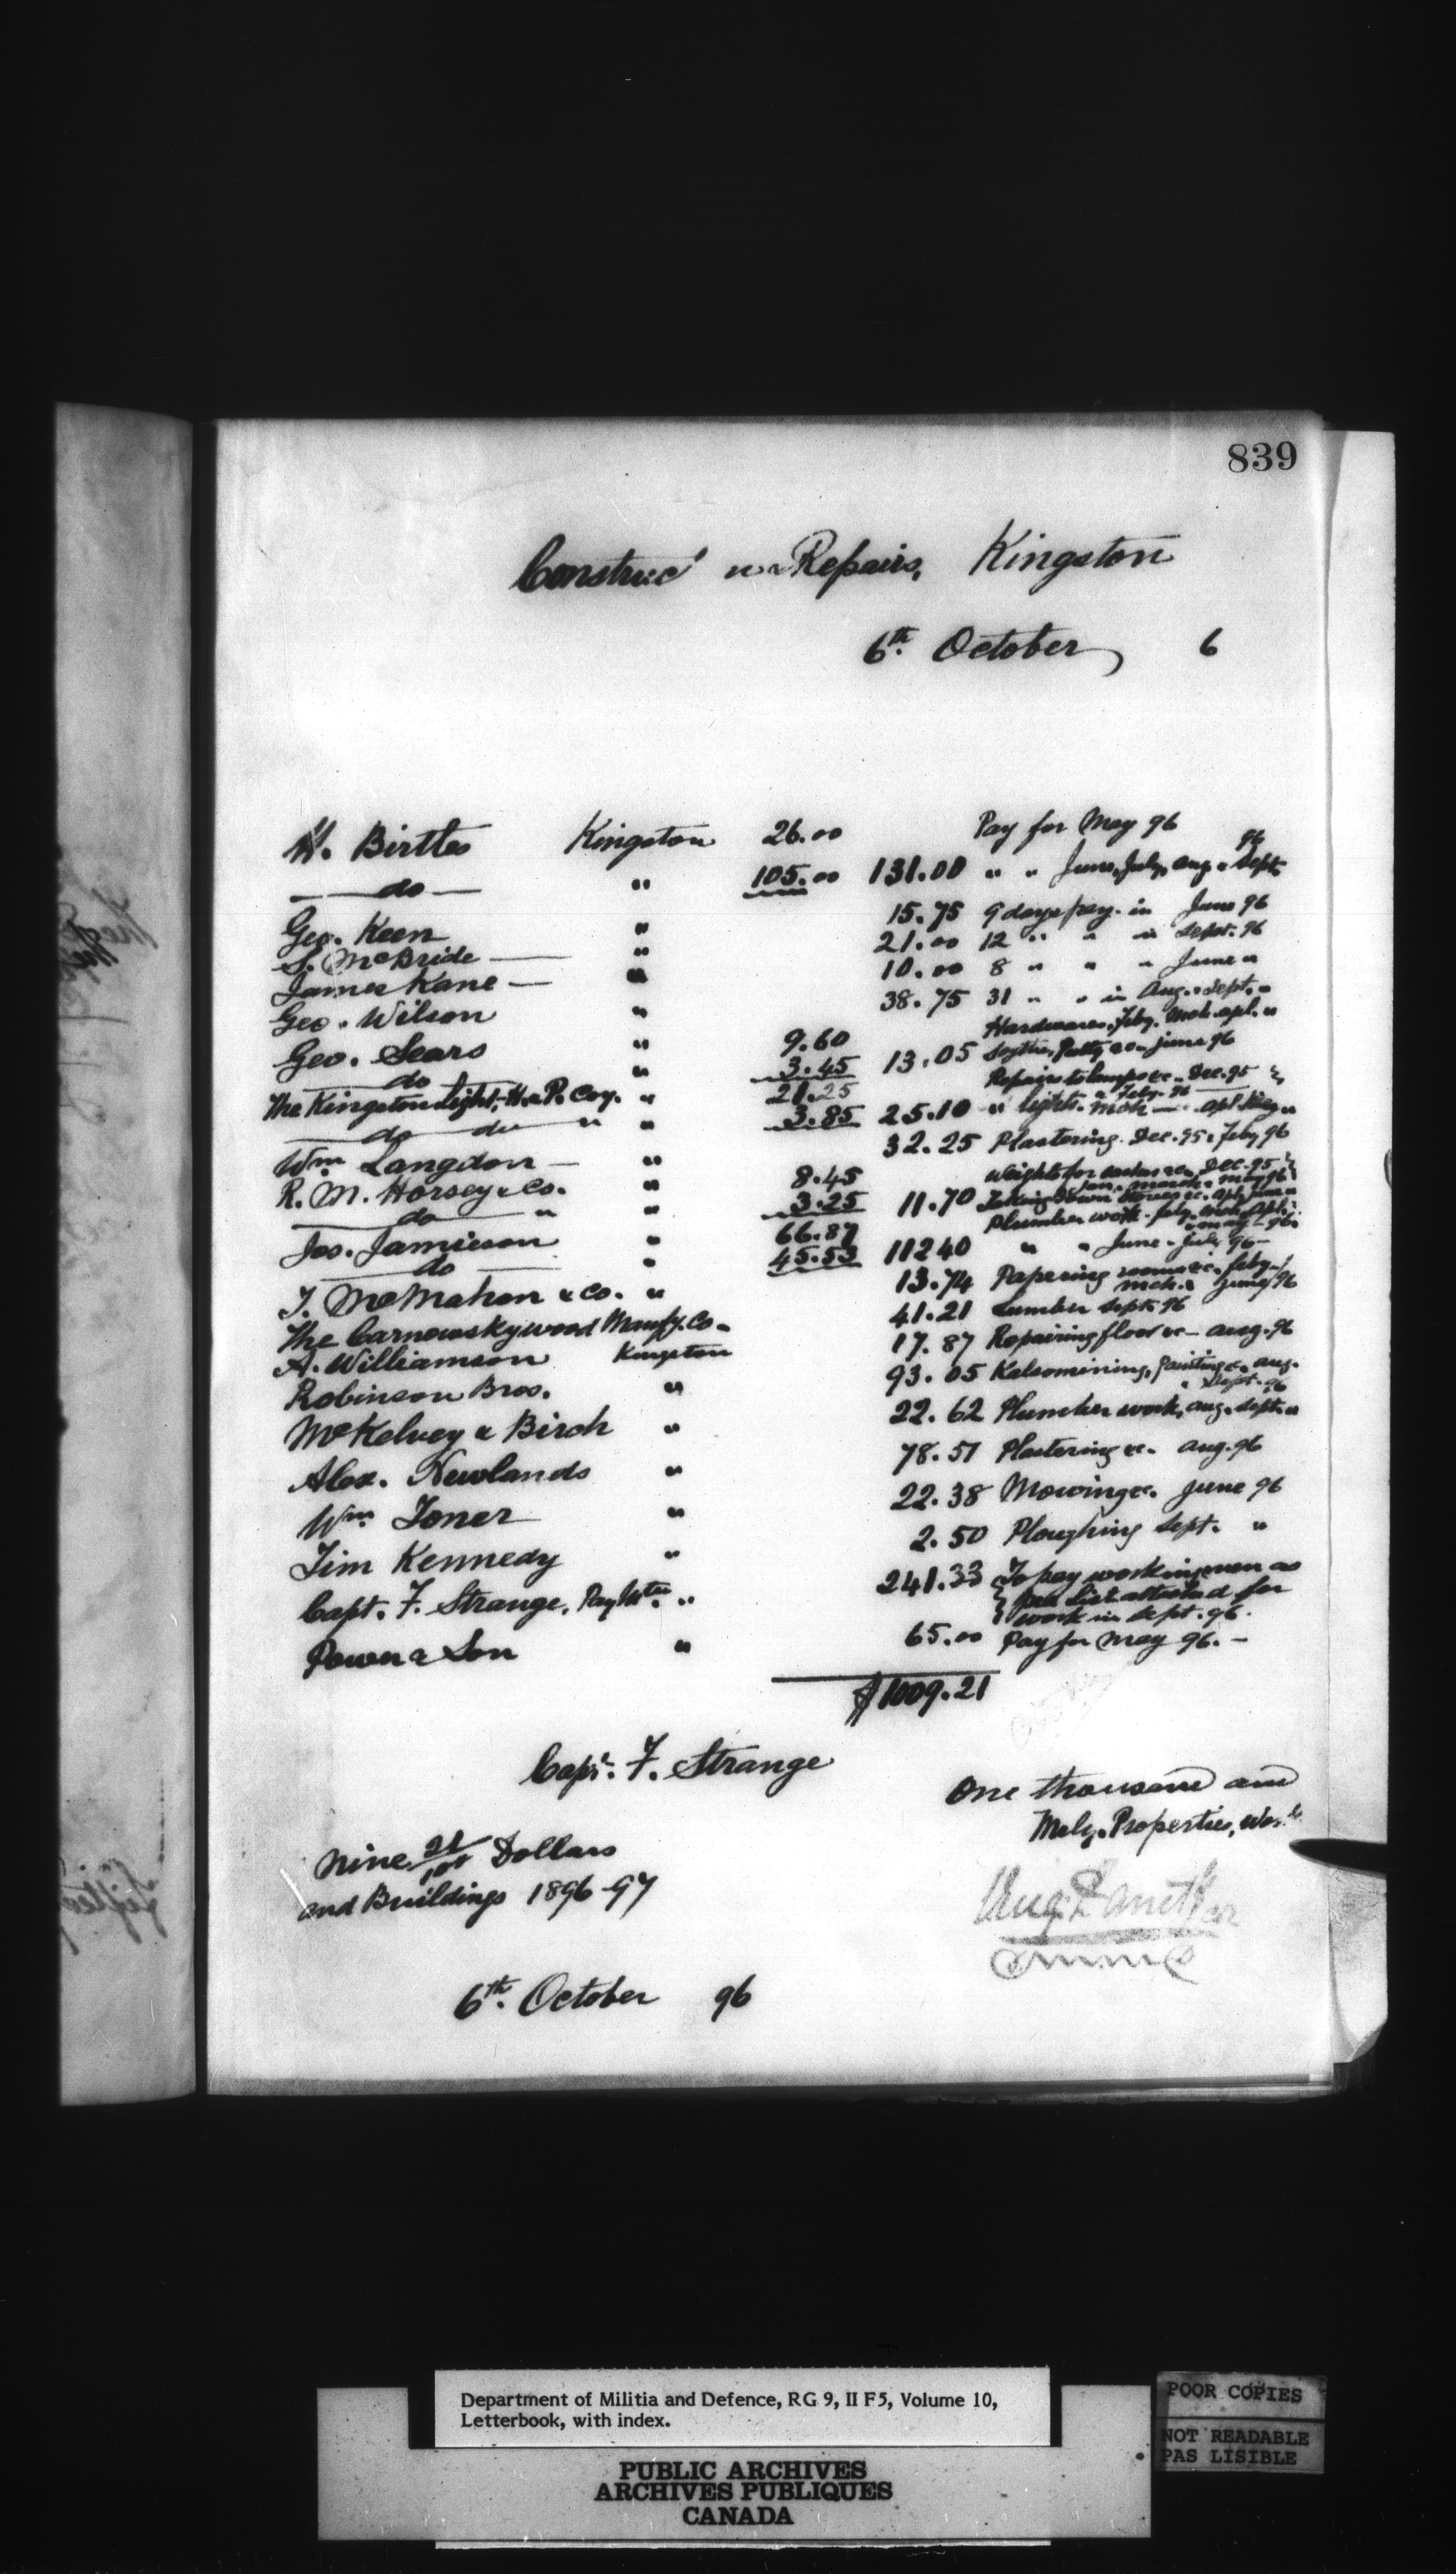 839
Construc' n & Repairs, Kingston
6th. October 6
W. Birtles Kingston 26.00 Pay for May 96
do " 105.00 131.00 " " June, July, Aug. & Sept. 96
Geo. Keen " 15.75 9 days pay in June 96
S. McBride " 21.00 12 " " " Sept. 96
James Kane " 10.00 8 " " " June "
Geo. Wilson " 38.75 31 " " in Aug. & Sept. "
Geo. Sears " 9.60 Hardware, Feby. Mch. Apl. "
do " 3.45 13.05 Scythe, Putty &c - June 96
The Kingston Light, H. & P. Coy. " 21.25 Repairs to lamps &c - Dec. 95 & Feby. 96
do do " " 3.85 25.10 " lights - Mch - Apl.
Wm Langdon " 32.25 Plastering Dec. 95 & Feby. 96
R. M. Horsey & Co. " 8.45 Weights for &c. Dec. 95 Jan. March & May 96
do " " 3.25 11.70 Taking down Stoves &c. Apl. June "
Jos. Jamieson " 66.87 Plumber work - Feby. Mch. Apl. & May - 96.
do " 45.53 11240 " " June - July 96 -
T. McMahon & Co. " 13.74 Papering rooms &c. Feby. Mch. & June/96
The Carnowsky wood Manfg. Co - 41.21 Lumber Sept. 96
A. Williamson Kingston 17.87 Repairing floor &c - Aug. 96
Robinson Bros. " 93.05 Kalsomining, Painting &c. Aug. & Sept. 96
McKelvey & Birch " 22.62 Plumber work, Aug. & Sept. "
Alex. Newlands " 78.51 Plastering &c. Aug. 96
Wm. Toner " 22.38 Mowing &c. June 96
Jim Kennedy " 2.50 Ploughing Sept. "
Capt. F. Strange, Pay Mter. " 241.33 To pay workingmen as
per List attached for
work in Sept. 96.
Power & Son " 65.00 Pay for May 96. -
$1009.21
Capt. F. Strange
One thousand and
Nine 21/100 Dollars Mily. Properties, Works
and Buildings 1896-97
6th. October 96
Department of Militia and Defence, RG 9, II F5, Volume 10,
Letterbook, with index.
PUBLIC ARCHIVES
ARCHIVES PUBLIQUES
CANADA
POOR COPIES
NOT READABLE
PAS LISIBLE